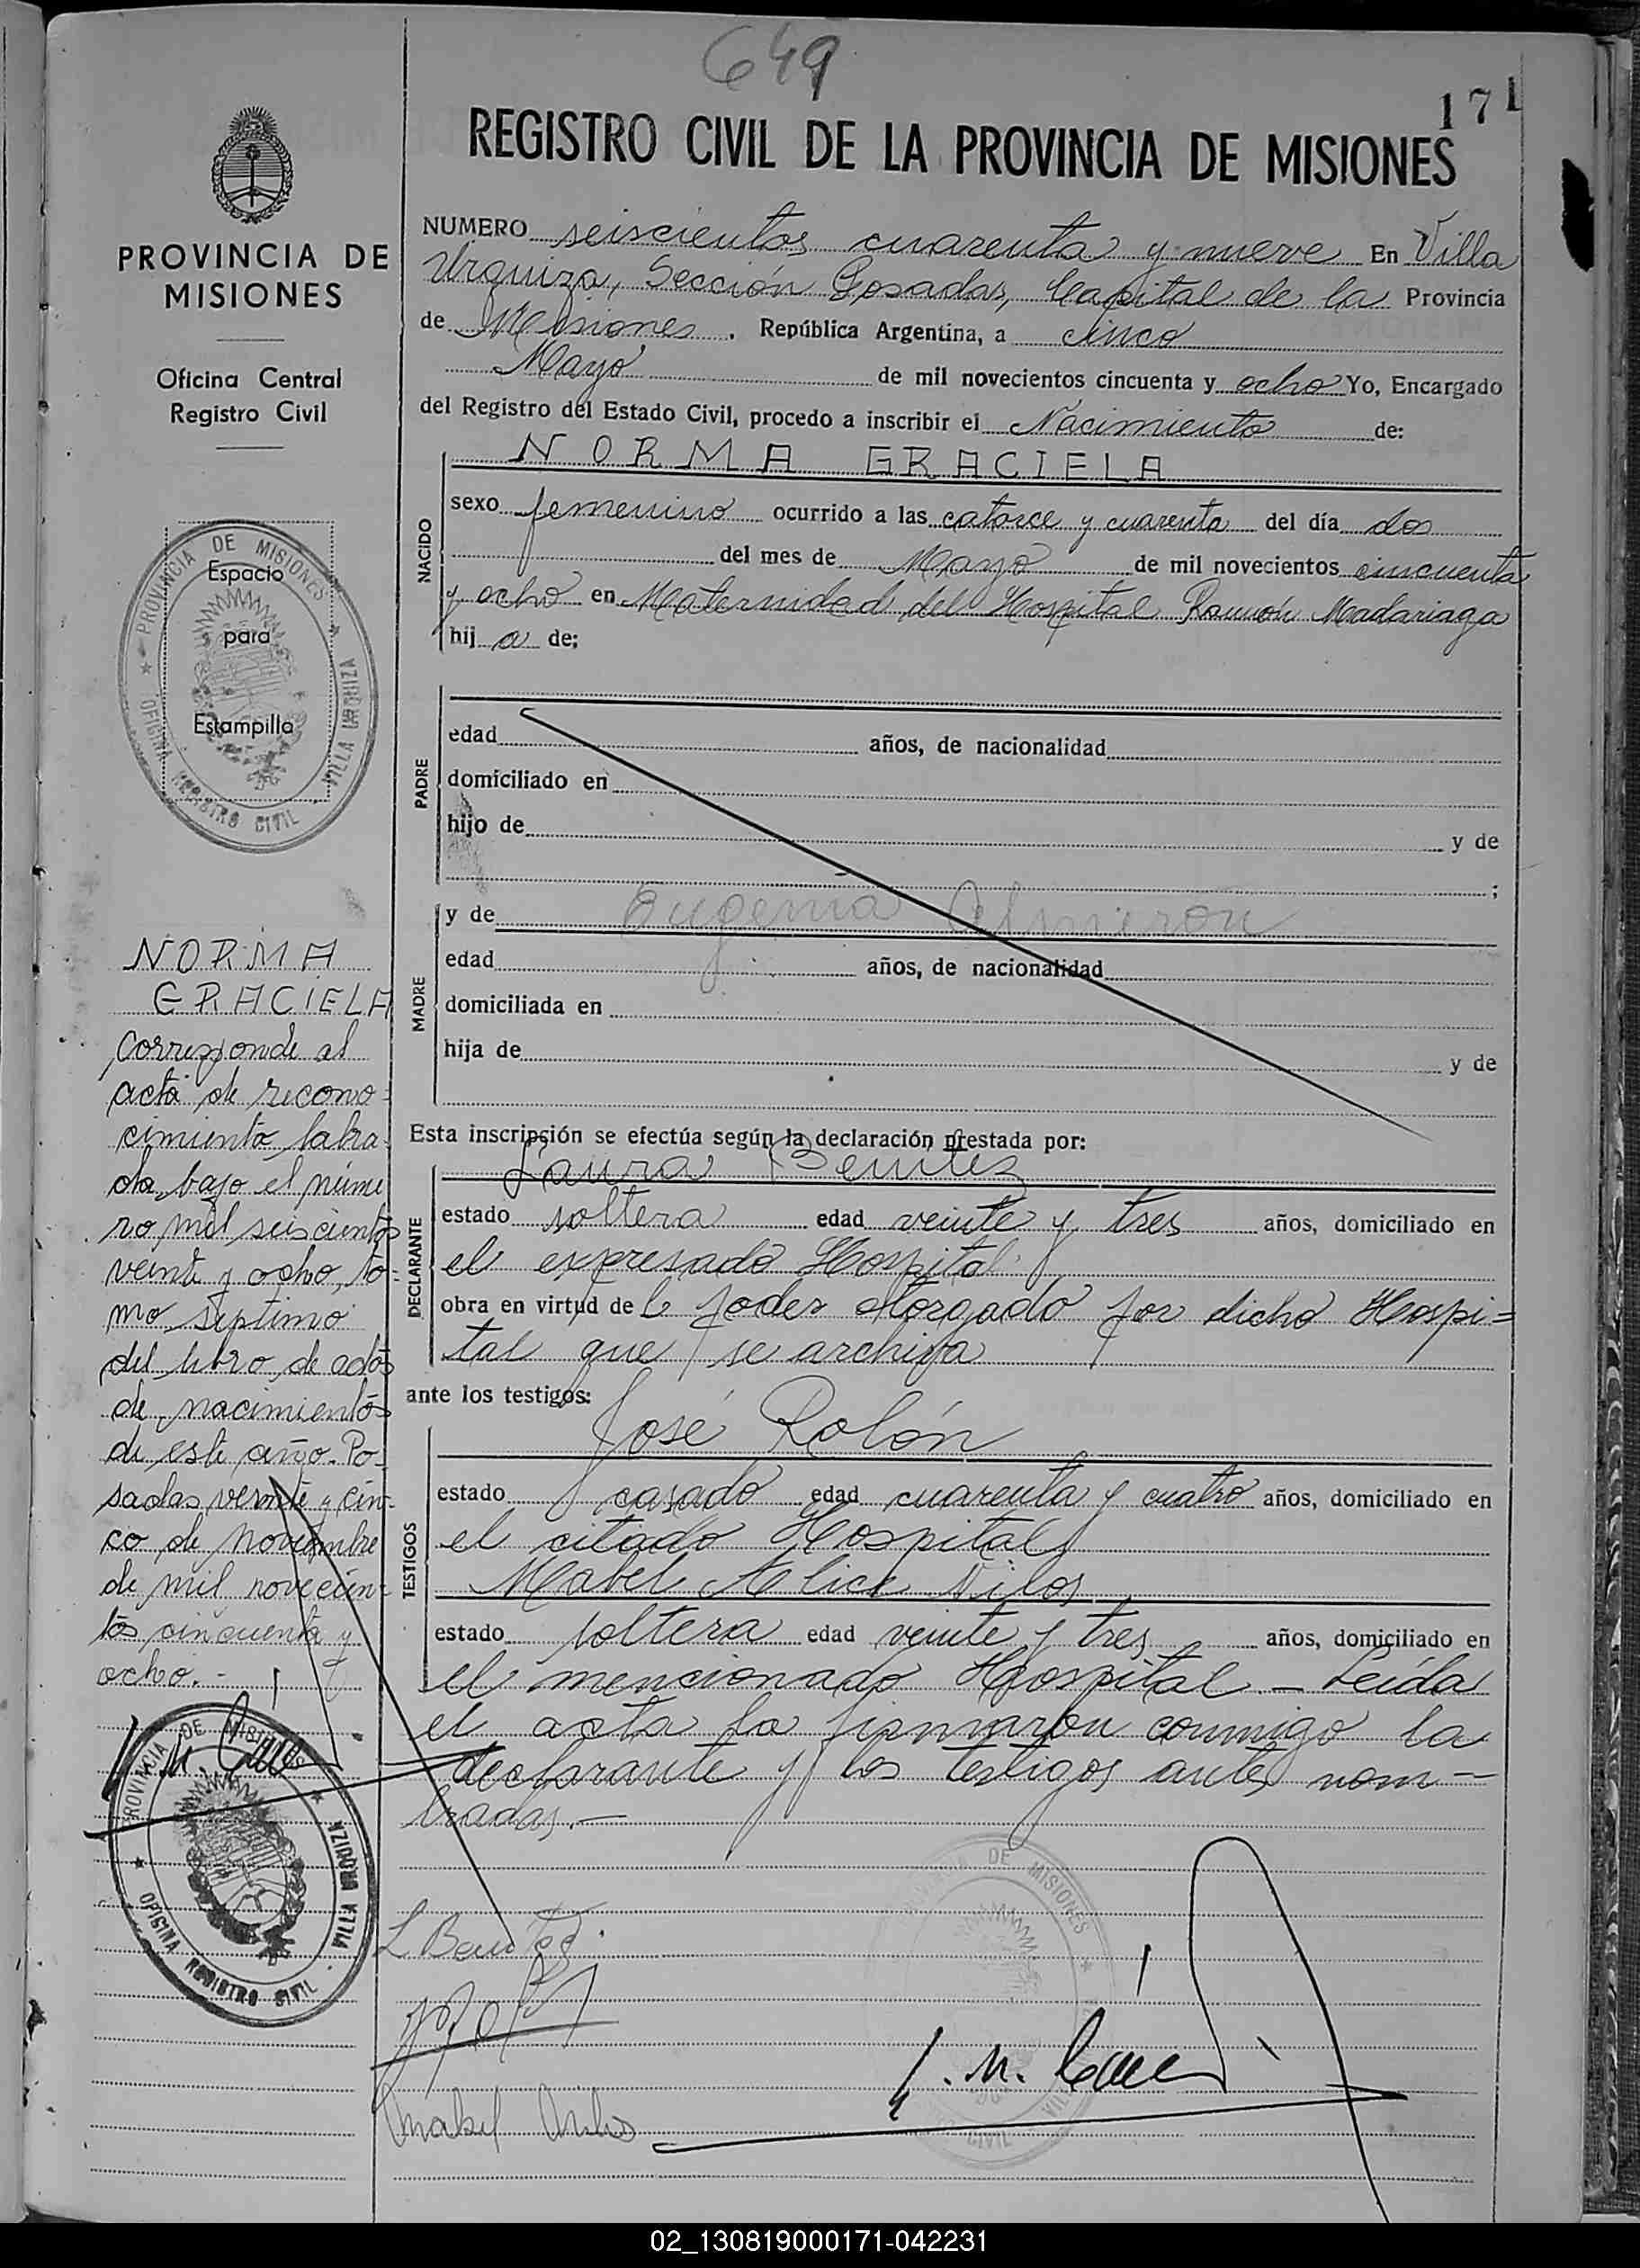 649
171
REGISTRO CIVIL DE LA PROVINCIA DE MISIONES
PROVINCIA DE
MISIONES
Oficina Central
Registro Civil
PROVINCIA DE MISIONES
OFICINA REGISTRO CIVIL
VILLA URQUIZA
Espacio
para
Estampilla
NUMERO seiscientos cuarenta y nueve En Villa
Urquiza, Sección Posadas, Capital de la Provincia
de Misiones. República Argentina, a cinco
Mayo de mil novecientos cincuenta y ocho Yo, Encargado
del Registro del Estado Civil, procedo a inscribir el Nacimiento de:
NORMA GRACIELA
NACIDO
sexo femenino ocurrido a las catorce y cuarenta del día dos
del mes de Mayo de mil novecientos cincuenta
y ocho en Maternidad del Hospital Ramón Madariaga
hij a de;
PADRE
edad años, de nacionalidad
domiciliado en
hijo de y de
;
MADRE
y de Eugenia Almiron
edad años, de nacionalidad
domiciliada en
hija de y de
Esta inscripsión se efectúa según la declaración prestada por:
DECLARANTE
Laura Benítez
estado soltera edad veinte y tres años, domiciliado en
el expresado Hospital
obra en virtud de l poder otorgado por dicho Hospi=
tal que se archiva
ante los testigos:
TESTIGOS
José Rolón
estado casado edad cuarenta y cuatro años, domiciliado en
el citado Hospital
Mabel Alice
estado soltera edad veinte y tres años, domiciliado en
el mencionado Hospital - Leída
el acta la firmaron conmigo la
declarante y los testigos antes nom-
brados.-
NORMA
GRACIELA
Corresponde al
acta de recono=
cimiento labra
da bajo el núme
ro mil seiscientos
veinte y ocho, to=
mo septimo
del libro de actas
de nacimientos
de este año. Po-
sadas veinte y cin-
co de noviembre
de mil novecien=
tos cincuenta y
ocho.-
PROVINCIA DE MISIONES
OFICINA REGISTRO CIVIL
VILLA URQUIZA
L Benitez
DE MISIONES
CIVIL
Mabel
02_130819000171-042231